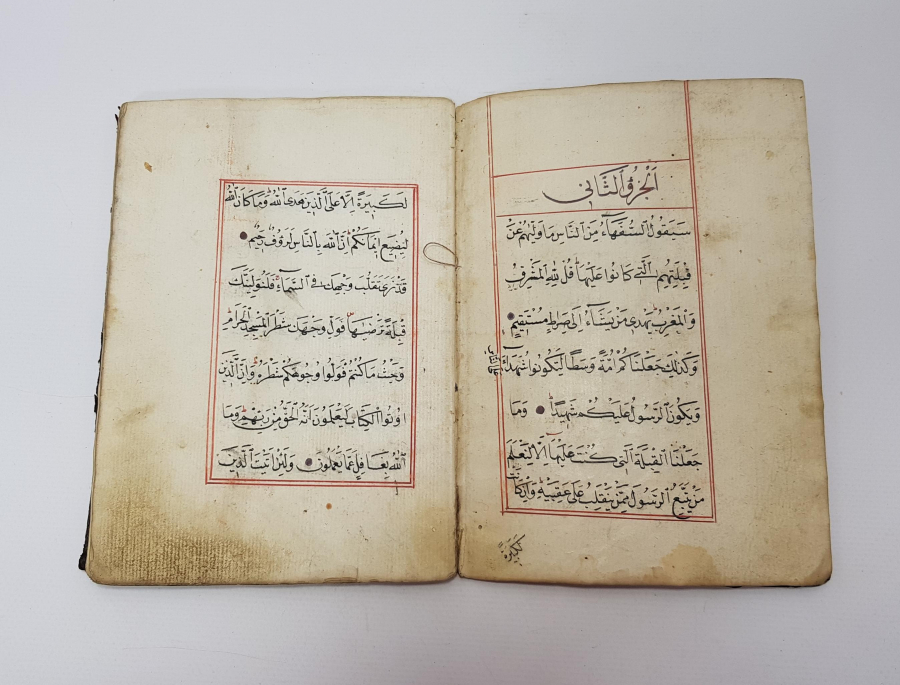 الجزؤ الثاني
سَيَقُولُ السُّفَهَاءُ مِنَ النَّاسِ مَا وَلّٰيهُمْ عَنْ
قِبْلَتِهِمُ الَّتِي كَانُوا عَلَيْهَا قُلْ لِلّٰهِ الْمَشْرِقُ
وَالْمَغْرِبُ يَهْدِي مَنْ يَشَاءُ إِلَى صِرَاطٍ مُسْتَقِيمٍ
وَكَذٰلِكَ جَعَلْنَاكُمْ أُمَّةً وَسَطًا لِتَكُونُوا شُهَدَاءَ
وَيَكُونَ الرَّسُولُ عَلَيْكُمْ شَهِيدًا وَمَا
جَعَلْنَا الْقِبْلَةَ الَّتِي كُنْتَ عَلَيْهَا إِلَّا لِنَعْلَمَ
مَنْ يَتَّبِعُ الرَّسُولَ مِمَّنْ يَنْقَلِبُ عَلَى عَقِبَيْهِ وَإِنْ كَانَتْ
لكبيرة
لَكَبِيرَةً إِلَّا عَلَى الَّذِينَ هَدَى اللّٰهُ وَمَا كَانَ اللّٰهُ
لِيُضِيعَ إِيمَانَكُمْ إِنَّ اللّٰهَ بِالنَّاسِ لَرَؤُفٌ رَحِيمٌ
قَدْ نَرَى تَقَلُّبَ وَجْهِكَ فِي السَّمَاءِ فَلَنُوَلِّيَنَّكَ
قِبْلَةً تَرْضٰيهَا فَوَلِّ وَجْهَكَ شَطْرَ الْمَسْجِدِ الْحَرَامِ
وَحَيْثُ مَا كُنْتُمْ فَوَلُّوا وُجُوهَكُمْ شَطْرَهُ وَإِنَّ الَّذِينَ
أُوتُوا الْكِتَابَ لَيَعْلَمُونَ أَنَّهُ الْحَقُّ مِنْ رَبِّهِمْ وَمَا
اللّٰهُ بِغَافِلٍ عَمَّا يَعْمَلُونَ وَلَئِنْ أَتَيْتَ الَّذِينَ